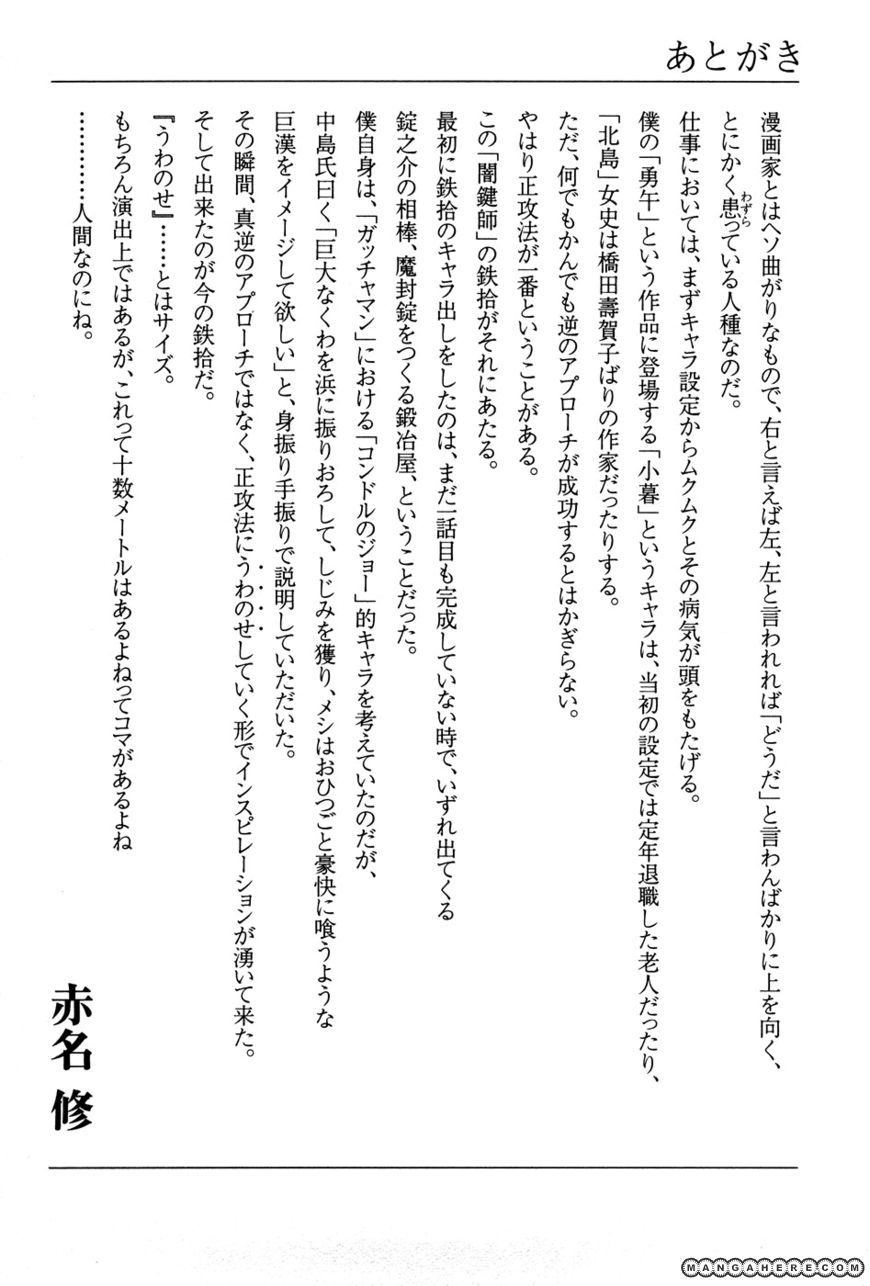 あとがき
漫画家とはヘソ曲がりなもので、右と言えば左、左と言われれば「どうだ」と言わんばかりに上を向く、
とにかく患っている人種なのだ。
わずら
仕事においては、まずキャラ設定からムクムクとその病気が頭をもたげる。
僕の「勇午」という作品に登場する「小暮」というキャラは、当初の設定では定年退職した老人だったり、
「北島」女史は橋田壽賀子ばりの作家だったりする。
ただ、何でもかんでも逆のアプローチが成功するとはかぎらない。
やはり正攻法が一番ということがある。
この「闇鍵師」の鉄拾がそれにあたる。
最初に鉄拾のキャラ出しをしたのは、まだ一話目も完成していない時で、いずれ出てくる
錠之介の相棒、魔封錠をつくる鍛冶屋、ということだった。
僕自身は、「ガッチャマン」における「コンドルのジョー」的キャラを考えていたのだが、
中島氏曰く「巨大なくわを浜に振りおろして、しじみを獲り、メシはおひつごと豪快に喰うような
巨漢をイメージして欲しい」と、身振り手振りで説明していただいた。
その瞬間、真逆のアプローチではなく、正攻法にうわのせしていく形でインスピレーションが湧いて来た。
そして出来たのが今の鉄拾だ。
『うわのせ』……とはサイズ。
もちろん演出上ではあるが、これって十数メートルはあるよねってコマがあるよね
…………人間なのにね。
赤名 修
MANGAHERE.COM